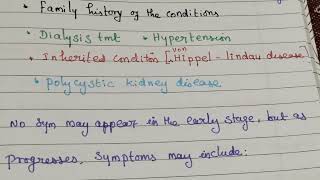 • Family history of the conditions
• Dialysis tmt • Hypertension
• Inherited conditon [Von Hippel - lindau disease]
• polycystic kidney disease
No sym may appear in the early stage, but as
progresses, symptoms may include: